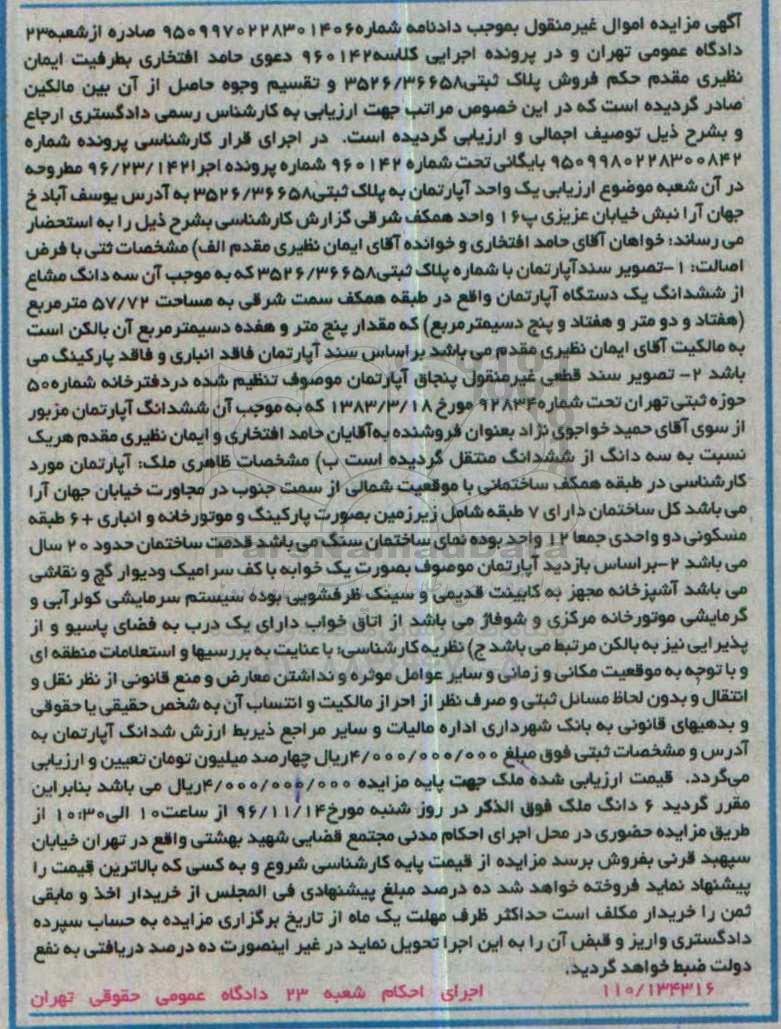 آگهی مزایده اموال غیرمنقول بموجب دادنامه شماره۹۵۰۹۹۷۰۲۲۸۳۰۱۴۰۶ صادره از شعبه۲۳
دادگاه عمومی تهران و در پرونده اجرایی کلاسه۹۶۰۱۴۲ دعوی حامد افتخاری بطرفیت ایمان
نظیری مقدم حکم فروش پلاک ثبتی۳۵۲۶/۳۶۶۵۸ و تقسیم وجوه حاصل از آن بین مالکین
صادر گردیده است که در این خصوص مراتب جهت ارزیابی به کارشناس رسمی دادگستری ارجاع
و بشرح ذیل توصیف اجمالی و ارزیابی گردیده است. در اجرای قرار کارشناسی پرونده شماره
۹۵۰۹۹۸۰۲۲۸۳۰۰۸۴۲ بایگانی تحت شماره ۹۶۰۱۴۲ شماره پرونده اجرا۹۶/۲۳/۱۴۲ مطروحه
در آن شعبه موضوع ارزیابی یک واحد آپارتمان به پلاک ثبتی۳۵۲۶/۳۶۶۵۸ به آدرس یوسف آباد خ
جهان آرا نبش خیابان عزیزی پ۱۶ واحد همکف شرقی گزارش کارشناسی بشرح ذیل را به استحضار
می رساند: خواهان آقای حامد افتخاری و خوانده آقای ایمان نظیری مقدم الف) مشخصات ثتی با فرض
اصالت: ۱-تصویر سندآپارتمان با شماره پلاک ثبتی۳۵۲۶/۳۶۶۵۸ که به موجب آن سه دانگ مشاع
از ششدانگ یک دستگاه آپارتمان واقع در طبقه همکف سمت شرقی به مساحت ۵۷/۷۲ مترمربع
(هفتاد و دو متر و هفتاد و پنج دسیمترمربع) که مقدار پنج متر و هفده دسیمترمربع آن بالکن است
به مالکیت آقای ایمان نظیری مقدم می باشد براساس سند آپارتمان فاقد انباری و فاقد پارکینگ می
باشد ۲- تصویر سند قطعی غیرمنقول پنجاق آپارتمان موصوف تنظیم شده دردفترخانه شماره۵۰
حوزه ثبتی تهران تحت شماره۹۲۸۳۴ مورخ ۱۳۸۳/۳/۱۸ که به موجب آن ششدانگ آپارتمان مزبور
از سوی آقای حمید خواجوی نژاد بعنوان فروشنده به‌آقایان حامد افتخاری و ایمان نظیری مقدم هریک
نسبت به سه دانگ از ششدانگ منتقل گردیده است ب) مشخصات ظاهری ملک: آپارتمان مورد
کارشناسی در طبقه همکف ساختمانی با موقعیت شمالی از سمت جنوب در مجاورت خیابان جهان آرا
می باشد کل ساختمان دارای ۷ طبقه شامل زیرزمین بصورت پارکینگ و موتورخانه و انباری +۶ طبقه
مسکونی دو واحدی جمعا ۱۲ واحد بوده نمای ساختمان سنگ می باشد قدمت ساختمان حدود ۲۰ سال
می باشد ۲-براساس بازدید آپارتمان موصوف بصورت یک خوابه با کف سرامیک ودیوار گچ و نقاشی
می باشد آشپزخانه مجهز به کابینت قدیمی و سینک ظرفشویی بوده سیستم سرمایشی کولرآبی و
گرمایشی موتورخانه مرکزی و شوفاژ می باشد از اتاق خواب دارای یک درب به فضای پاسیو و از
پذیرایی نیز به بالکن مرتبط می باشد ج) نظریه کارشناسی: با عنایت به بررسیها و استعلامات منطقه ای
و با توجه به موقعیت مکانی و زمانی و سایر عوامل موثره و نداشتن معارض و منع قانونی از نظر نقل و
انتقال و بدون لحاظ مسائل ثبتی و صرف نظر از احراز مالکیت و انتساب آن به شخص حقیقی یا حقوقی
و بدهیهای قانونی به بانک شهرداری اداره مالیات و سایر مراجع ذیربط ارزش شدانگ آپارتمان به
آدرس و مشخصات ثبتی فوق مبلغ ۴/۰۰۰/۰۰۰/۰۰۰ریال چهارصد میلیون تومان تعیین و ارزیابی
می‌گردد. قیمت ارزیابی شده ملک جهت پایه مزایده ۴/۰۰۰/۰۰۰/۰۰۰ریال می باشد بنابراین
مقرر گردید ۶ دانگ ملک فوق الذکر در روز شنبه مورخ۹۶/۱۱/۱۴ از ساعت۱۰ الی۱۰:۳۰ از
طریق مزایده حضوری در محل اجرای احکام مدنی مجتمع قضایی شهید بهشتی واقع در تهران خیابان
سپهبد قرنی بفروش برسد مزایده از قیمت پایه کارشناسی شروع و به کسی که بالاترین قیمت را
پیشنهاد نماید فروخته خواهد شد ده درصد مبلغ پیشنهادی فی المجلس از خریدار اخذ و مابقی
ثمن را خریدار مکلف است حداکثر ظرف مهلت یک ماه از تاریخ برگزاری مزایده به حساب سپرده
دادگستری واریز و قبض آن را به این اجرا تحویل نماید در غیر اینصورت ده درصد دریافتی به نفع
دولت ضبط خواهد گردید.
۱۱۰/۱۳۴۳۱۶ اجرای احکام شعبه ۲۳ دادگاه عمومی حقوقی تهران